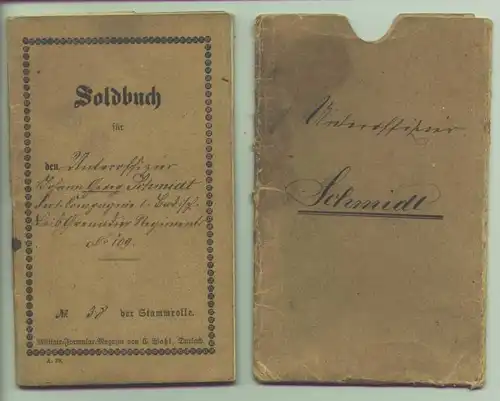 Soldbuch
für
den Unteroffizier
Johann Georg Schmidt
Compagnie 1. Bad.
Leib Grenadier Regiments
No 109.
№ 38 der Stammrolle.
Militair-Formular-Magazin von
A. 28.
Unteroffizier
Schmidt